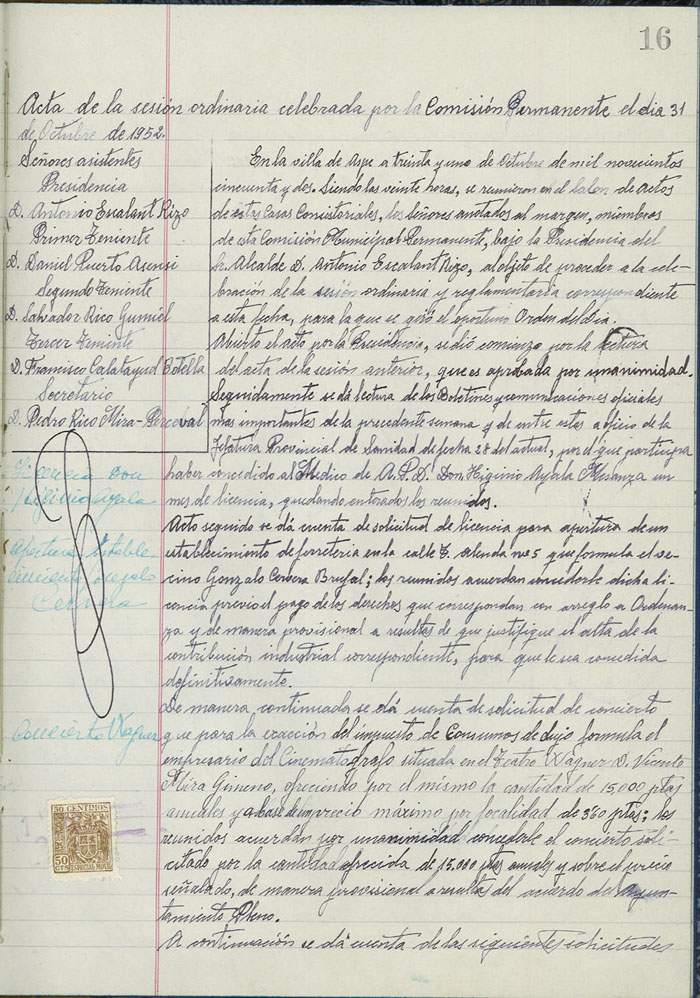 16
Acta de la sesión ordinaria celebrada por la Comisión Permanente el dia 31
de Octubre de 1952.
Señores asistentes
Presidencia
D. Antonio Escalant Rizo
Primer Teniente
D. Daniel Puerto Asensi
Segundo Teniente
D. Salvador Rico Gumiel
Tercer Teniente
D. Francisco Calatayud Botella
Secretario
D. Pedro Rico Mira-Perceval
En la villa de Aspe a treinta y uno de Octubre de mil novecientos
cincuenta y dos. Siendo las veinte horas, se reunieron en el salon de actos
de estas Casas Consistoriales, los señores anotados al margen, miembros
de esta Comisión Municipal Permanente, bajo la Presidencia del
Sr. Alcalde D. Antonio Escalant Rizo, al objeto de proceder a la cele-
bración de la sesión ordinaria y reglamentaria correspondiente
a esta fecha, para la que se giró el oportuno Orden del Dia.
Abierto el acto por la Presidencia, se dió comienzo por la lectura
del acta de la sesión anterior, que es aprobada por unanimidad.
Seguidamente se dá lectura de los Boletines y comunicaciones oficiales
mas importantes de la precedente semana y de entre estas a oficio de la
Jefatura Provincial de Sanidad de fecha 28 del actual, por el que participa
haber concedido al Medico de A.P.D. Don Higinio Ayala un
mes de licencia, quedando enterados los reunidos.
Acto seguido se dá cuenta de solicitud de licencia para apertura de un
establecimiento de ferreteria en la calle T. nº 5 que formula el ve-
cino Gonzalo Cervera Brufal; los reunidos acuerdan concederle dicha li-
cencia previo el pago de los derechos que correspondan con arreglo a Ordenan-
za y de manera provisional a resultas de que justifique el alta de la
contribución industrial correspondiente, para que le sea concedida
definitivamente.
De manera continuada se dá cuenta de solicitud de concierto
que para la exacción del impuesto de Consumos de lujo formula el
empresario del Cinematógrafo situado en el Teatro Wagner D. Vicente
Mira Gimeno, ofreciendo por el mismo la cantidad de 15,000 ptas
anuales y a base de un precio máximo por localidad de 3'50 ptas; los
reunidos acuerdan por unanimidad concederle el concierto soli-
citado por la cantidad ofrecida de 15,000 ptas anuales y sobre el precio
señalado, de manera provisional a resultas del acuerdo del Ayun-
tamiento Pleno.
A continuación se dá cuenta de las siguientes solicitudes
Licencia don
Higinio Ayala
apertura estable
cimiento Gonzalo
Cervera
Concierto Wagner
50 CENTIMOS
50
CTS
ESPECIAL MOVIL